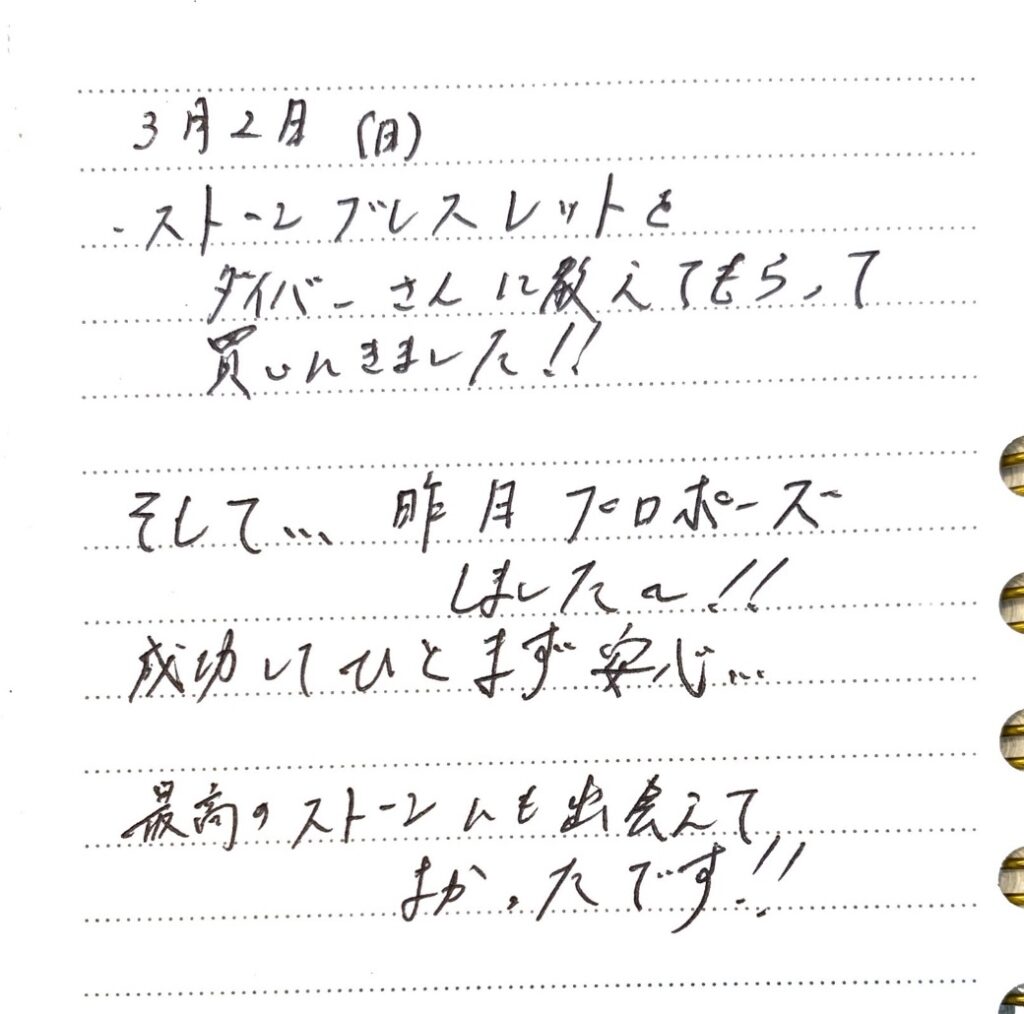 3月2日(日)
・ストーンブレスレットを
ダイバーさんに教えてもらって
買いにきました!!
そして... 昨日プロポーズ
しました〜!!
成功してひとまず安心...
最高のストーンにも出会えて
よかったです!!